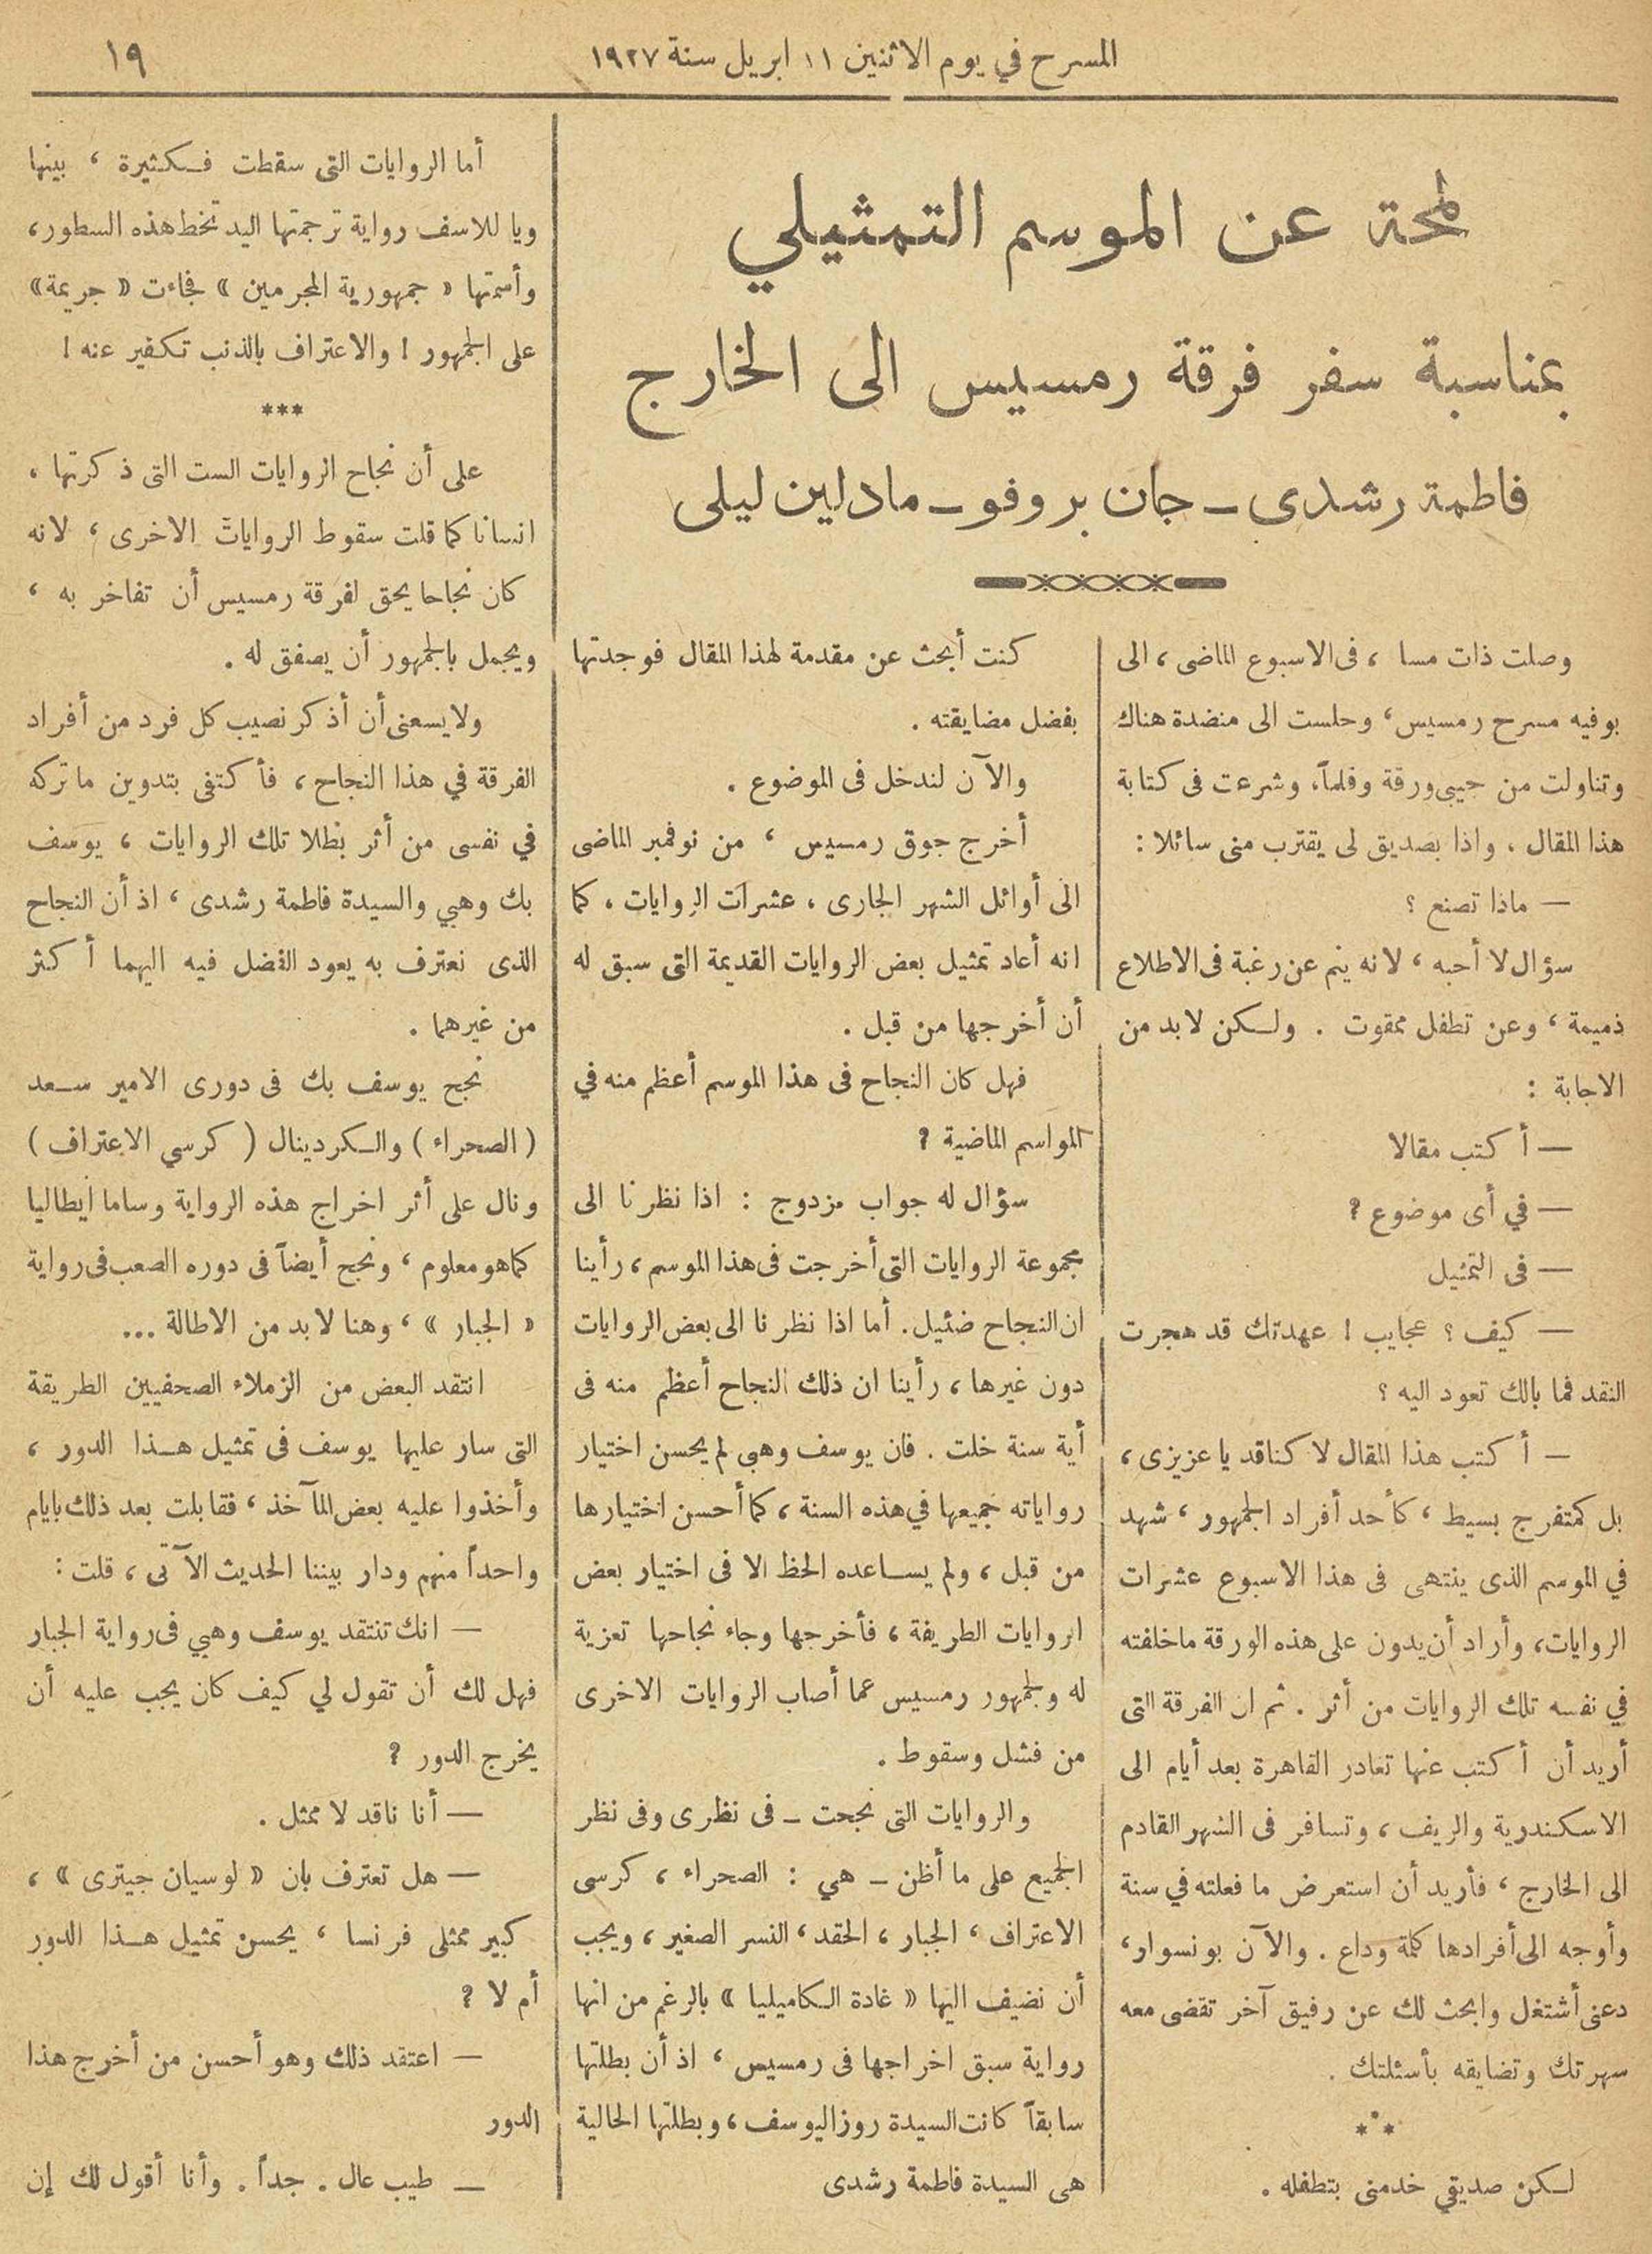 المسرح في يوم الاثنين ١١ ابريل سنة ١٩٢٧
١٩
لمحة عن الموسم التمثيلي
بمناسبة سفر فرقة رمسيس الى الخارج
فاطمة رشدى ـ جان بروفو ـ مادلين ليلى
وصلت ذات مسا ، فى الاسبوع الماضى ، الى
بوفيه مسرح رمسيس ، وجلست الى منضدة هناك
وتناولت من جيبى ورقة وقلماً، وشرعت فى كتابة
هذا المقال . واذا بصديق لى يقترب منى سائلا :
— ماذا تصنع ؟
سؤال لا أحبه ، لانه ينم عن رغبة فى الاطلاع
ذميمة ، وعن تطفل ممقوت . ولكن لابد من
الاجابة :
— أكتب مقالا
— في أى موضوع ؟
— فى التمثيل
— كيف ؟ عجايب ! عهدتك قد هجرت
النقد فما بالك تعود اليه ؟
— أكتب هذا المقال لا كناقد يا عزيزى ،
بل كمتفرج بسيط ، كأحد أفراد الجمهور ، شهد
في الموسم الذى ينتهى فى هذا الاسبوع عشرات
الروايات، وأراد أن يدون على هذه الورقة ما خلفته
في نفسه تلك الروايات من أثر . ثم ان الفرقة التى
أريد أن أكتب عنها تغادر القاهرة بعد أيام الى
الاسكندرية والريف ، وتسافر فى الشهر القادم
الى الخارج ، فأريد أن استعرض ما فعلته في سنة
وأوجه الى أفرادها كلمة وداع . والآن بونسوار،
دعنى أشتغل وابحث لك عن رفيق آخر تقضى معه
سهرتك وتضايقه بأسئلتك .
***
لكن صديقي خدمنى بتطفله .
كنت أبحث عن مقدمة لهذا المقال فوجدتها
بفضل مضايقته .
والآن لندخل فى الموضوع .
أخرج جوق رمسيس ، من نوفمبر الماضى
الى أوائل الشهر الجارى ، عشرات الروايات ، كما
انه أعاد تمثيل بعض الروايات القديمة التى سبق له
أن أخرجها من قبل .
فهل كان النجاح فى هذا الموسم أعظم منه في
المواسم الماضية ؟
سؤال له جواب مزدوج : اذا نظرنا الى
مجموعة الروايات التى أخرجت فى هذا الموسم ، رأينا
ان النجاح ضئيل. أما اذا نظرنا الى بعض الروايات
دون غيرها ، رأينا ان ذلك النجاح أعظم منه فى
أية سنة خلت . فان يوسف وهبى لم يحسن اختيار
رواياته جميعها في هذه السنة ، كما أحسن اختيارها
من قبل ، ولم يساعده الحظ الا فى اختيار بعض
الروايات الطريفة ، فأخرجها وجاء نجاحها تعزية
له ولجمهور رمسيس عما أصاب الروايات الاخرى
من فشل وسقوط .
والروايات التى نجحت ـ فى نظرى وفى نظر
الجميع على ما أظن ـ هي : الصحراء ، كرسى
الاعتراف ، الجبار ، الحقد ، النسر الصغير ، ويجب
أن نضيف اليها « غادة الكاميليا » بالرغم من انها
رواية سبق اخراجها فى رمسيس ، اذ أن بطلتها
سابقاً كانت السيدة روز اليوسف ، وبطلتها الحالية
هى السيدة فاطمة رشدى
أما الروايات التى سقطت فكثيرة ، بينها
ويا للاسف رواية ترجمتها اليد تخط هذه السطور،
وأسمتها « جمهورية المجرمين » فجاءت « جريمة»
على الجمهور ! والاعتراف بالذنب تكفير عنه !
***
على أن نجاح الروايات الست التى ذكرتها ،
انسانا كما قلت سقوط الروايات الاخرى ، لانه
كان نجاحا يحق لفرقة رمسيس أن تفاخر به ،
ويجمل بالجمهور أن يصفق له .
ولا يسعنى أن أذكر نصيب كل فرد من أفراد
الفرقة في هذا النجاح ، فأكتفى بتدوين ما تركه
في نفسى من أثر بطلا تلك الروايات ، يوسف
بك وهبي والسيدة فاطمة رشدى ، اذ أن النجاح
الذى نعترف به يعود الفضل فيه اليهما أكثر
من غيرهما .
نجح يوسف بك فى دورى الامير سعد
( الصحراء ) والكردينال ( كرسي الاعتراف )
ونال على أثر اخراج هذه الرواية وساما ايطاليا
كما هو معلوم ، ونجح أيضاً فى دوره الصعب فى رواية
« الجبار » ، وهنا لابد من الاطالة ...
انتقد البعض من الزملاء الصحفيين الطريقة
التى سار عليها يوسف فى تمثيل هذا الدور ،
وأخذوا عليه بعض المآخذ ، فقابلت بعد ذلك بايام
واحداً منهم ودار بيننا الحديث الآتى ، قلت :
— انك تنتقد يوسف وهبي فى رواية الجبار
فهل لك أن تقول لي كيف كان يجب عليه أن
يخرج الدور ؟
— أنا ناقد لا ممثل .
— هل تعترف بان « لوسيان جيترى » ،
كبير ممثلى فرنسا ، يحسن تمثيل هذا الدور
أم لا ؟
— اعتقد ذلك وهو أحسن من أخرج هذا
الدور
— طيب عال . جداً . وأنا أقول لك إن